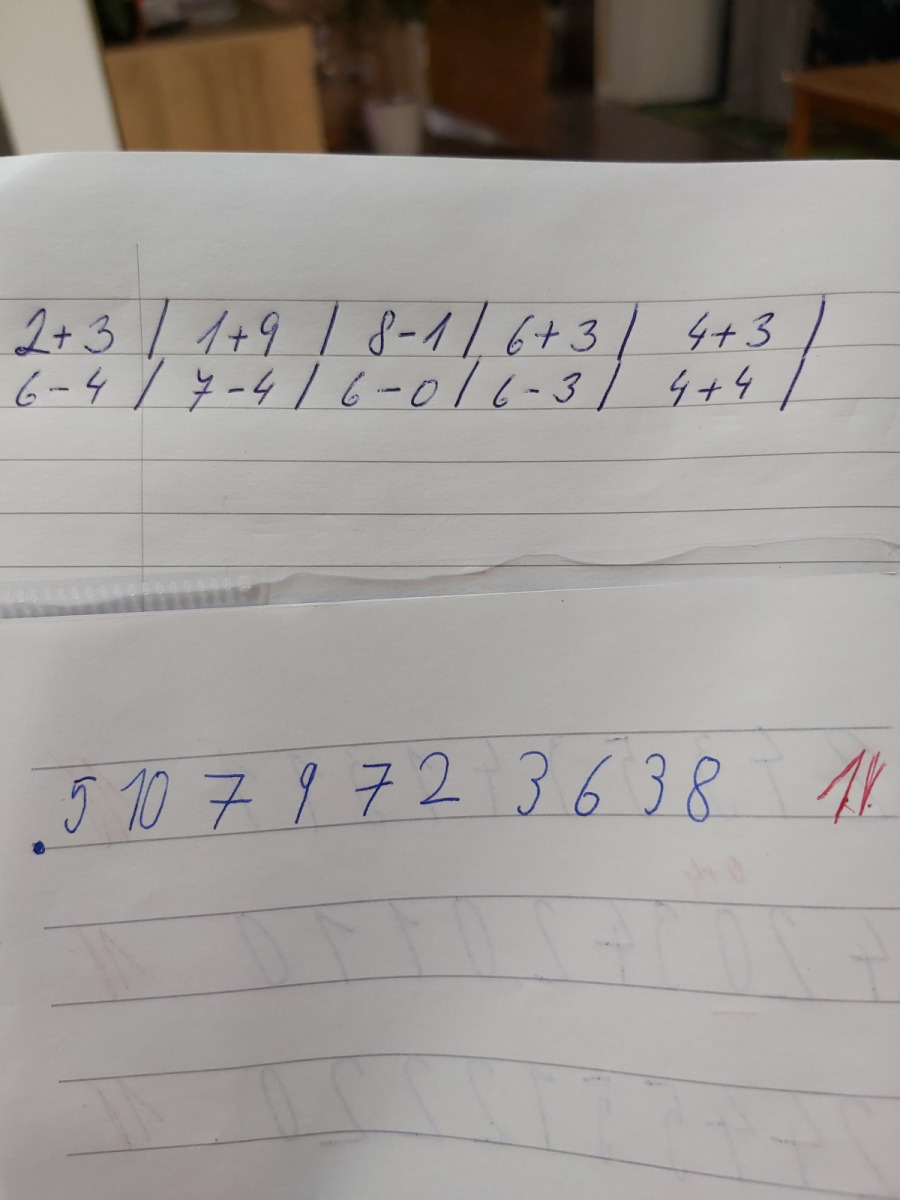 2+3 / 1+9 / 8-1 / 6+3 / 4+3 /
6-4 / 7-4 / 6-0 / 6-3 / 4+4 /
5 10 7 9 7 2 3 6 3 8